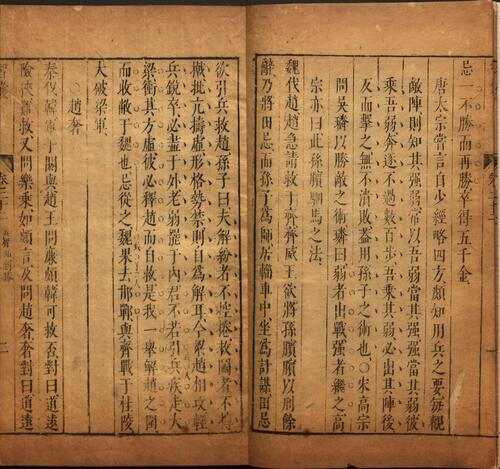 忌一不勝而再勝卒得五千金
唐太宗嘗言自少經略四方頗知用兵之要每觀
敵陣則知其强弱常以吾弱當其强强當其弱彼
乘吾弱奔逐不過數百步吾乘其弱必出其陣後
反而擊之無不潰敗蓋用孫子之術也○宋高宗
問吳璘以勝敵之術璘曰弱者出戰强者繼之高
宗亦曰此孫臏駟馬之法
魏伐趙趙急請救于齊齊威王欲將孫臏臏以刑餘
辭乃將田忌而孫子爲師居輜車中坐爲計謀田忌
欲引兵救趙孫子曰夫解紛者不控捲救鬭者不搏
撠批亢擣虛形格勢禁則自爲解耳今梁趙相攻輕
兵銳卒必盡于外老弱罷于內君不若引兵疾走大
梁衝其方虛彼必釋趙而自救是我一舉解趙之圍
而收敝于魏也忌從之魏果去邯鄲與齊戰于桂陵
大破梁軍
○趙奢
秦伐韓軍于閼與趙王問廉頗韓可救否對曰道遠
險狹難救又問樂乘如頗言及問趙奢奢對曰道遠